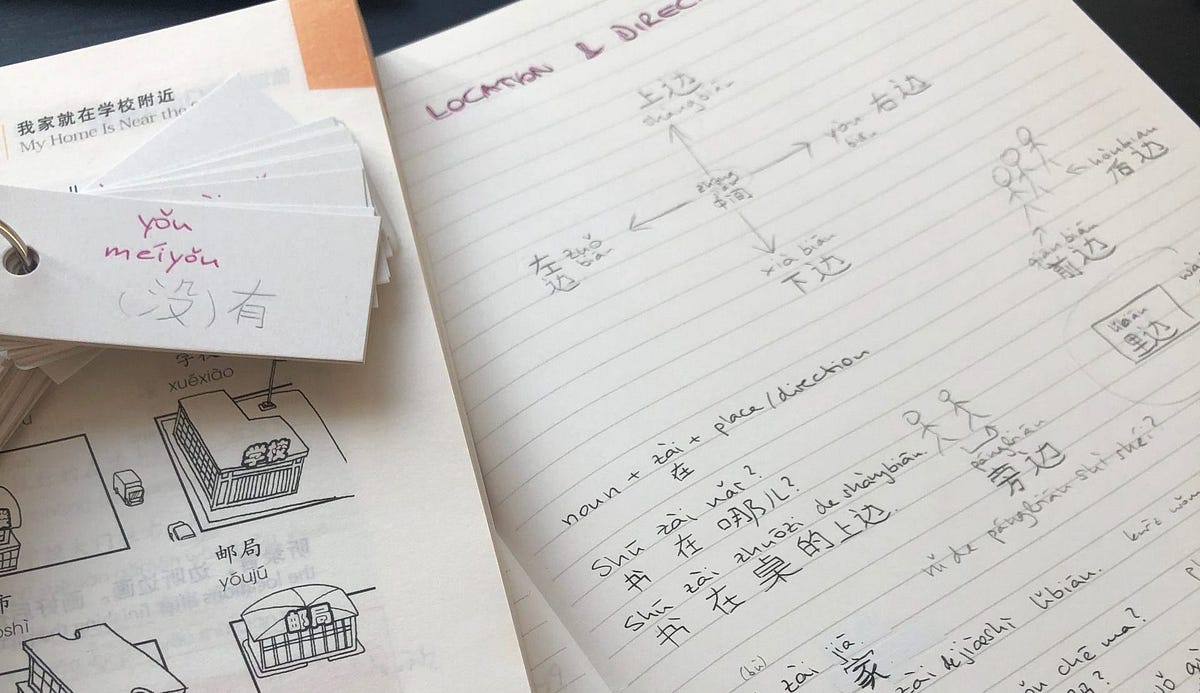 我家就在学校附近
My Home Is Near the
yǒu
méiyǒu
(没)有
xuéxiào
邮局
yóujú
邮局
LOCATION & DIREC
上边
shàngbiān
yòu 右边
biān
中间
左 zuǒ
边 biān
xià biān
下边
hòubian
后边
qiánbiān
前边
lǐbiān
里边
noun + zài + place/direction
在
Shū zài nǎr?
书 在 哪儿?
Shū zài zhuōzi de shàngbiān.
书 在 桌 的上边.
pángbiān
旁边
nǐ de pángbiān shì shéi?
(bù)
zài jiā
家
lǐbiān.
chē ma?